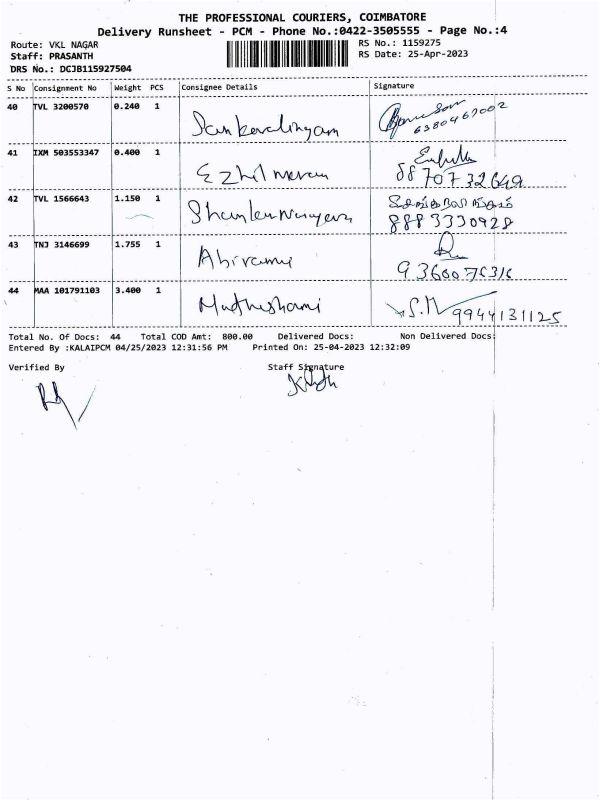 THE PROFESSIONAL COURIERS, COIMBATORE
Delivery Runsheet - PCM - Phone No.:0422-3505555 - Page No.:4
Route: VKL NAGAR RS No.: 1159275
Staff: PRASANTH RS Date: 25-Apr-2023
DRS No.: DCJB115927504
S No Consignment No Weight PCS Consignee Details Signature
40 TVL 3200570 0.240 1 Sankaralingam
6380467002
41 IXM 503553347 0.400 1 Ezhil maran
8870732649
42 TVL 1566643 1.150 1 Shankernarayana
8883330928
43 TNJ 3146699 1.755 1 Abirami
9360076316
44 MAA 101791103 3.400 1 Muthushami S.M 9944131125
Total No. Of Docs: 44 Total COD Amt: 800.00 Delivered Docs: Non Delivered Docs:
Entered By :KALAIPCM 04/25/2023 12:31:56 PM Printed On: 25-04-2023 12:32:09
Verified By Staff Signature